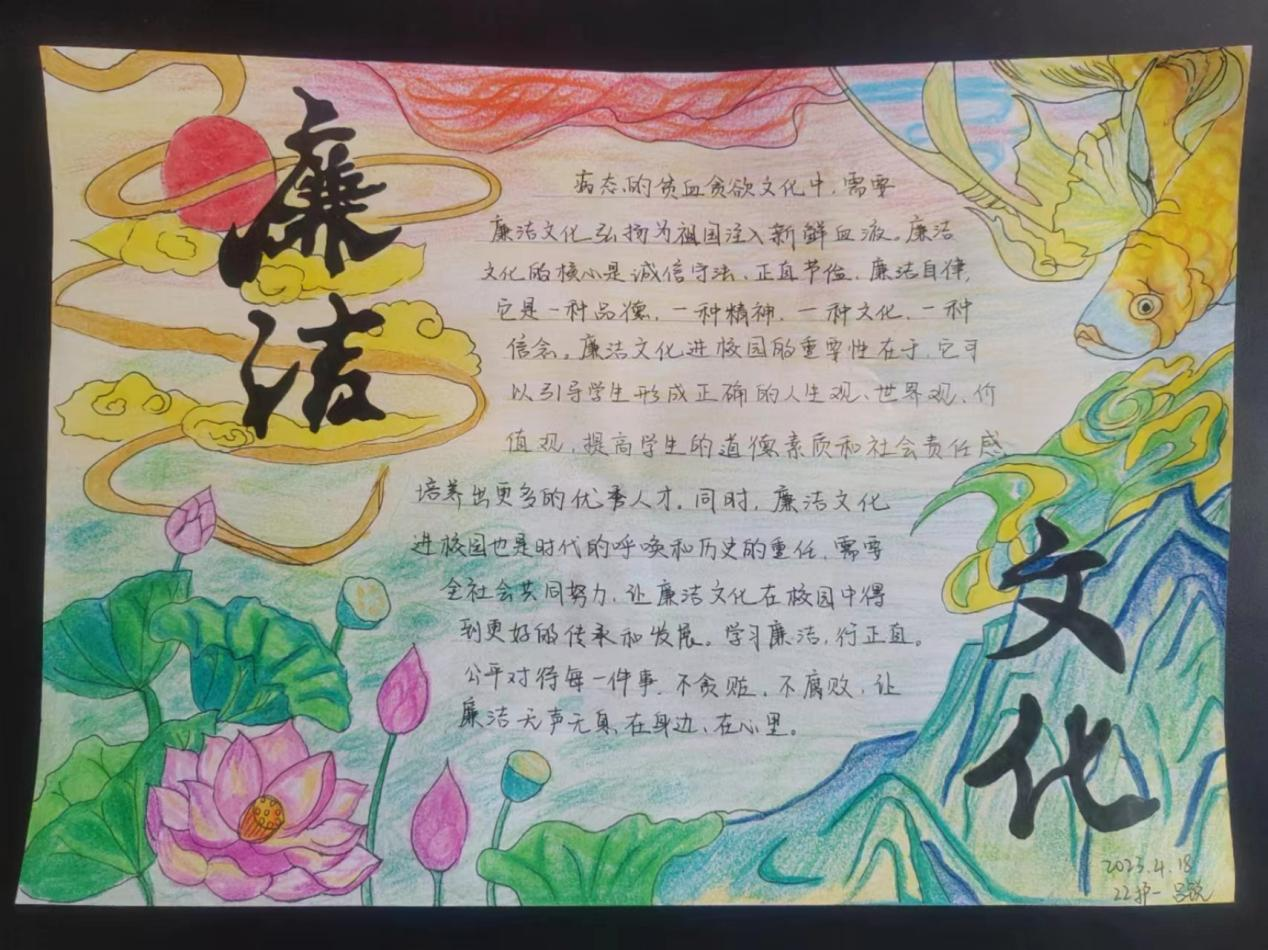 廉洁
病态的贫血贪欲文化中,需要
廉洁文化弘扬为祖国注入新鲜血液。廉洁
文化的核心是诚信守法、正直节俭、廉洁自律,
它是一种品德,一种精神,一种文化,一种
信念。廉洁文化进校园的重要性在于,它可
以引导学生形成正确的人生观、世界观、价
值观,提高学生的道德素质和社会责任感
培养出更多的优秀人才。同时,廉洁文化
进校园也是时代的呼唤和历史的重任,需要
全社会共同努力,让廉洁文化在校园中得
到更好的传承和发展。学习廉洁,行正直。
公平对待每一件事,不贪赃,不腐败,让
廉洁无声无息,在身边、在心里。
文化
2023.4.18
22护一